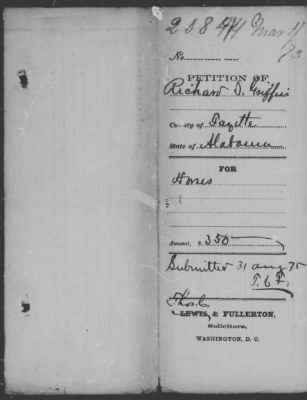 No.
PETITION OF
Richard D. Griffin
County of Fayette
State of Alabama
FOR
Horses
Amount, $ 350
Submitted 31 Aug 75
T. C. F.
Thos. C.
LEWIS & FULLERTON,
Solicitors,
WASHINGTON, D. C.